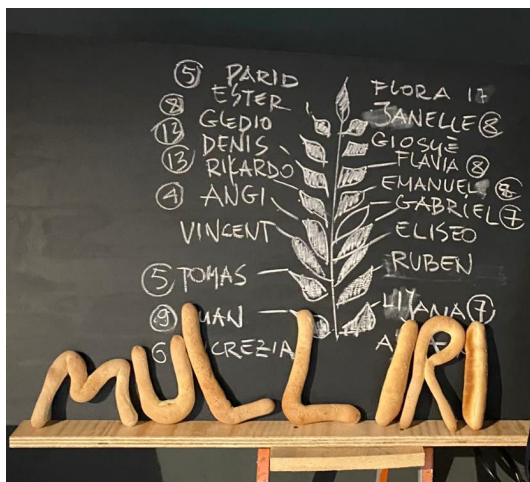 ⑤ PARID
⑧ ESTER
⑫ GLEDIO
DENIS
⑬ RIKARDO
④ ANGI
VINCENT
⑤ TOMAS
⑨ UAN
6 CREZIA
FLORA 17
JANELLE ⑧
GIOSUE
FLAVIA ⑧
EMANUEL ⑧
GABRIEL ⑦
ELISEO
RUBEN
⑦
MULLIRI